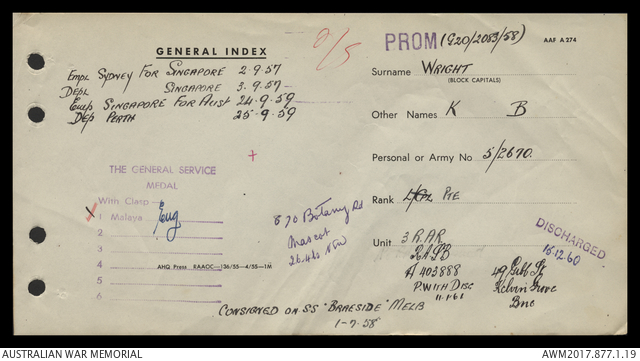 2/5
PROM (G20/2083/58) AAF A274
GENERAL INDEX
Empl SYDNEY FOR SINGAPORE 2.9.57
Depl SINGAPORE 3.9.57
Emp SINGAPORE FOR AUST 24.9.59
Dep PERTH 25.9.59
Surname WRIGHT
(BLOCK CAPITALS)
Other Names K B
Personal or Army No 5/2670.
Rank L/Cpl PTE
Unit 3 RAR
A 403888
P. WITH DISC
11.1.61
DISCHARGED
16.12.60
49 Gibb St
Kelvin Grove
Bne
THE GENERAL SERVICE
MEDAL
With Clasp
1 Malaya
2
3
4
5
6
870 Botany Rd
Mascot
NSW
AHQ Press RAAOC—136/55—4/55—1M
CONSIGNED ON SS "BRAESIDE" MELB
1-7-58
AUSTRALIAN WAR MEMORIAL AWM2017.877.1.19